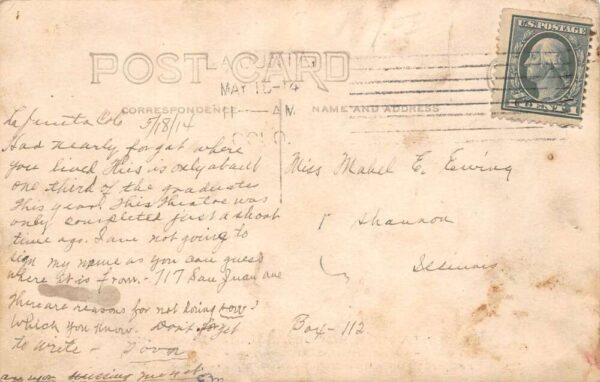 POST CARD
CORRESPONDENCE
NAME AND ADDRESS
LA
MAY 18 14
AM
COLO.
U.S. POSTAGE
CENT
La Junta Colo 5/18/14
Had nearly forgot where
you lived This is only about
one third of the graduates
this year. This theatre was
only completed just a short
time ago. I am not going to
sign my name as you can guess
where it is from - 717 San Juan ave
There are reasons for not doing
which you know. Don't forget
to write -
are you
Miss Mabel E. Ewing
Shannon
Illinois
Box - 112